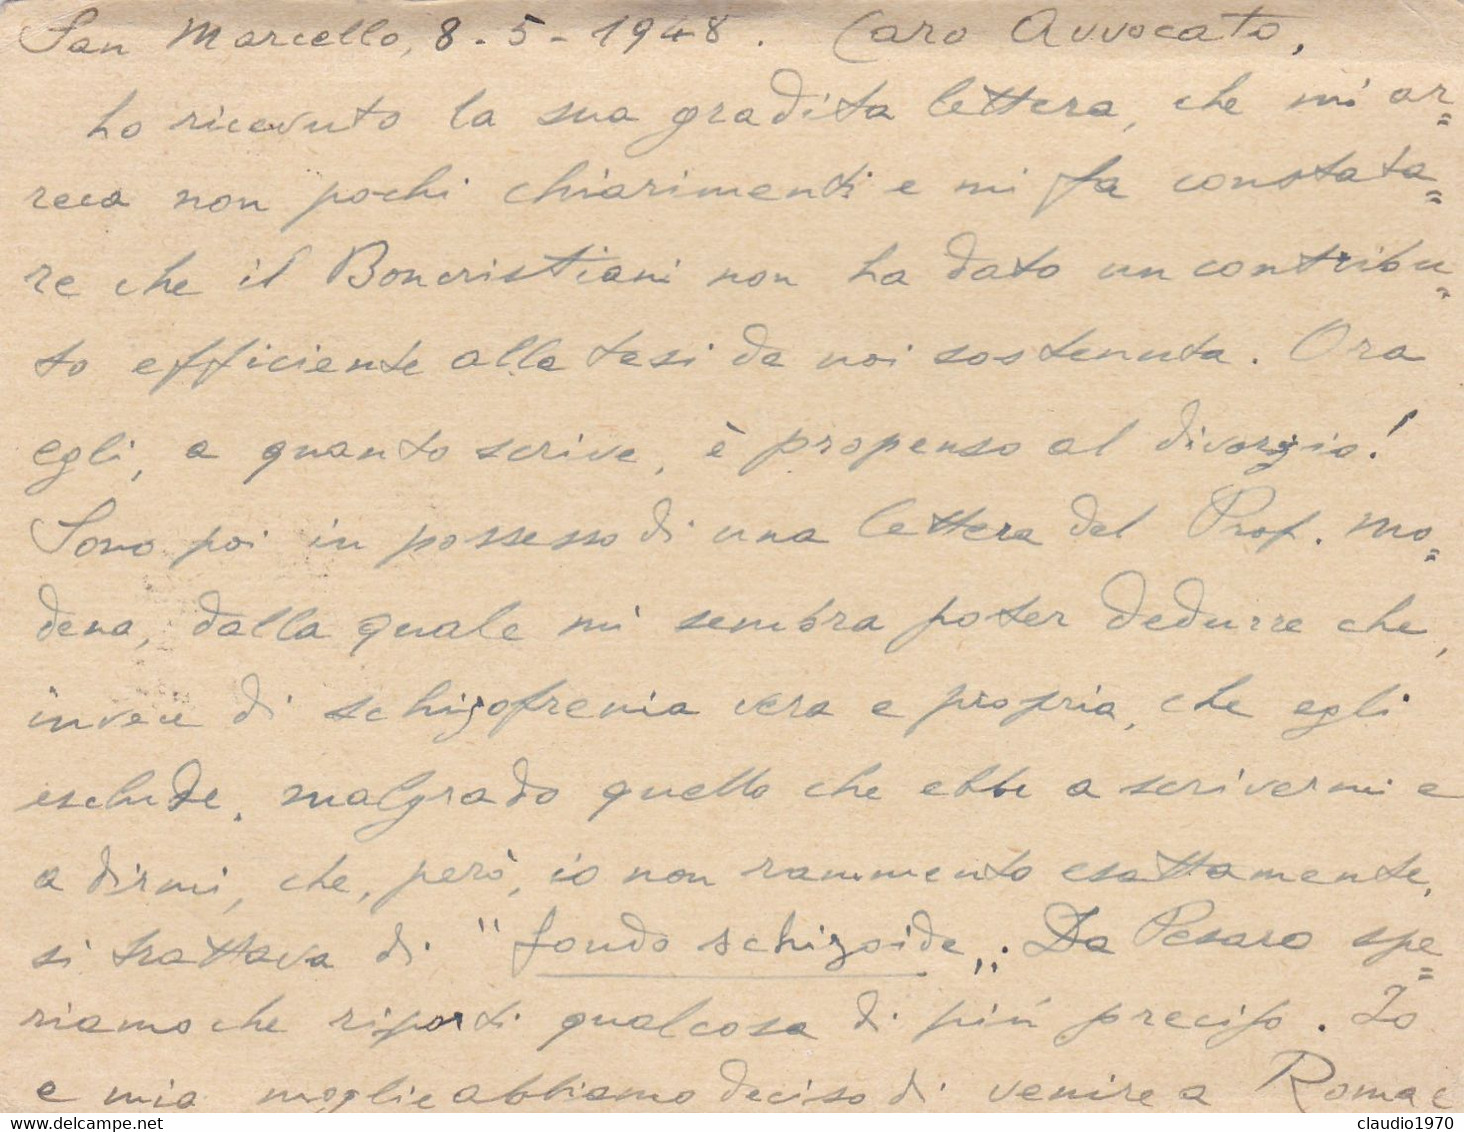 San Marcello, 8-5-1948. Caro Avvocato,
ho ricevuto la sua gradita lettera, che mi ar=
reca non pochi chiarimenti e mi fa constata=
re che il Boncristiani non ha dato un contribu=
to efficiente alla tesi da noi sostenuta. Ora
egli, a quanto scrive, è propenso al divorzio!
Sono poi in possesso di una lettera del Prof. Mo=
dena, dalla quale mi sembra poter dedurre che,
invece di schizofrenia vera e propria, che egli
esclude, malgrado quello che ebbe a scrivermi e
a dirmi, che, però, io non rammento esattamente,
si trattava di "fondo schizoide„. Da Pesaro spe=
riamo che riporti qualcosa di più preciso. Io
e mia moglie abbiamo deciso di venire a Roma e
www.delcampe.net
claudio1970